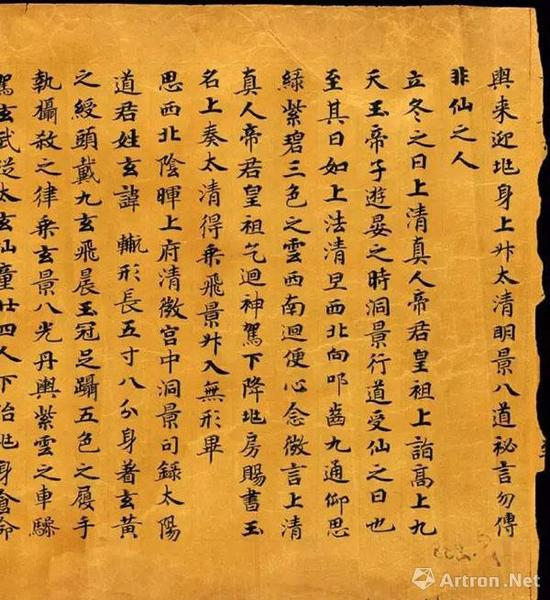 輿来迎兆身上升太清明景八道祕言勿傳
非仙之人
立冬之日上清真人帝君皇祖上詣高上九
天玉帝子遊晏之時洞景行道受仙之日也
至其日如上法清旦西北向叩齒九通仰思
緑紫碧三色之雲西南迴便心念微言上清
真人帝君皇祖乞迴神駕下降兆房賜書玉
名上奏太清得乘飛景升入無形畢
思西北陰暉上府清微宮中洞景司録太陽
道君姓玄諱 形長五寸八分身著玄黄
之綬頭戴九玄飛晨玉冠足躡五色之履手
執攝殺之律乘玄景八光丹輿紫雲之車驂
駕玄武從太玄仙童廿四人下治兆身倉命
雅昌艺术网
Artron.Net